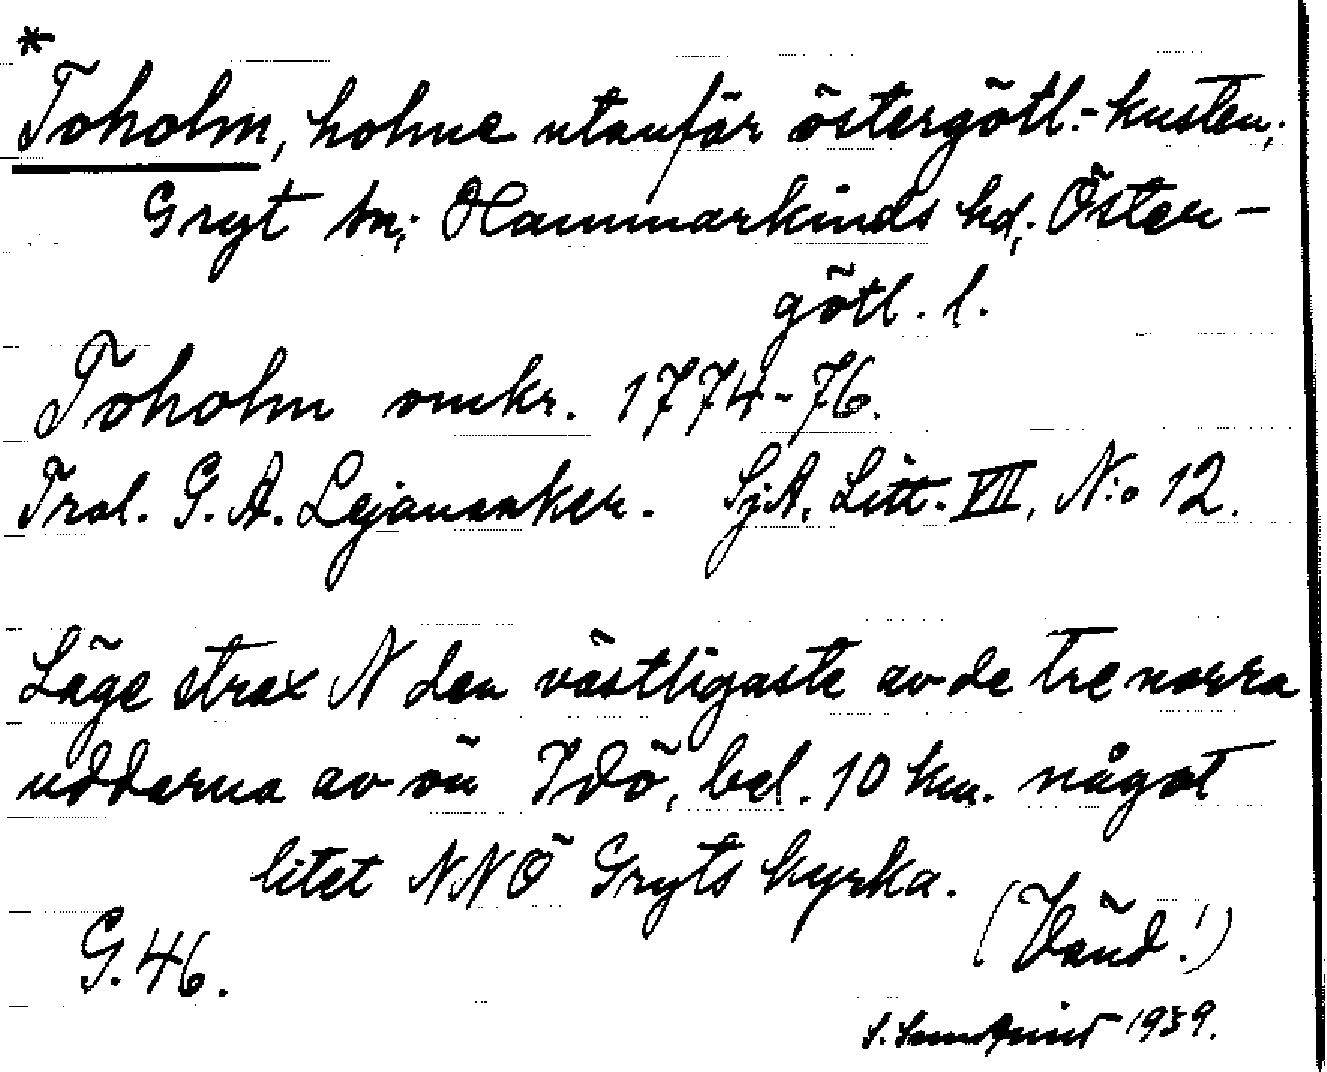 *
Toholm, holme utanför östergötl.-kusten;
Gryt sn; Hammarkinds hd; Öster-
götl. l.
Toholm omkr. 1774-76.
Trol. G. A. Lejonanker. SjA, Litt. VII, N:o 12.
Läge strax N den västligaste av de tre norra
uddarna av ön Idö, bel. 10 km. något
litet NNÖ Gryts kyrka.
(Vänd!)
G. 46.
S. 1939.